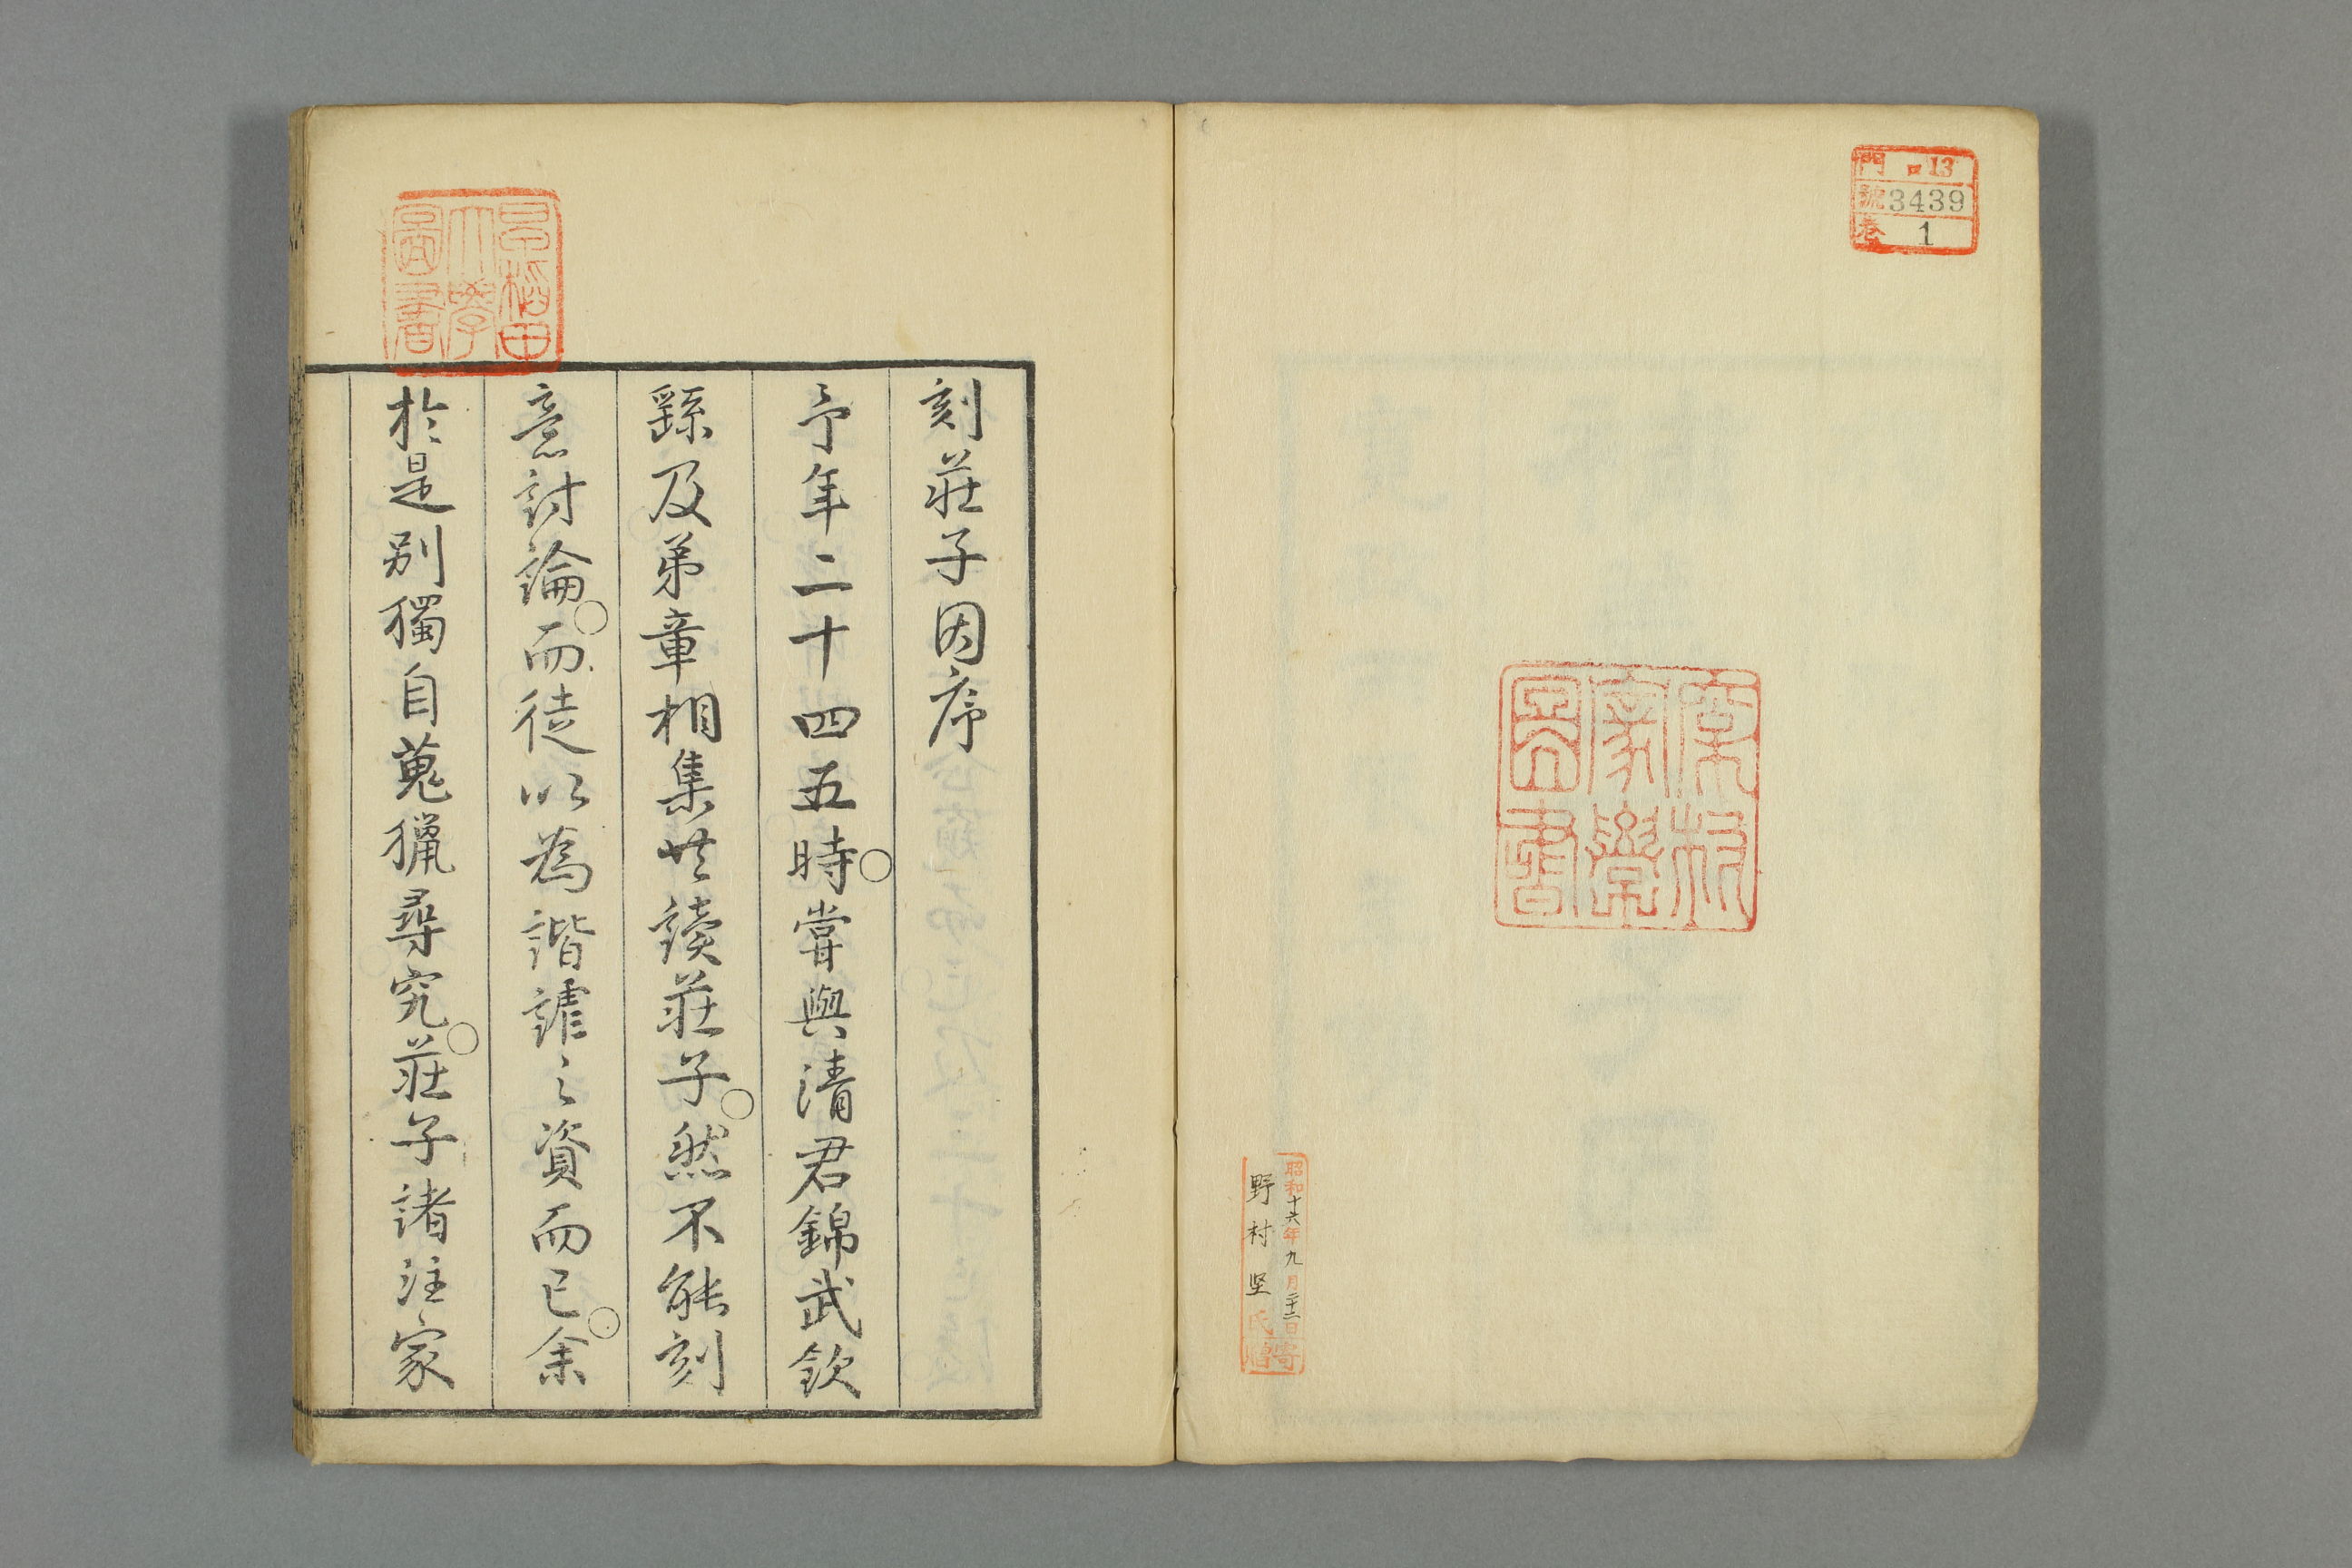 門 ロ 13
號 3439
卷 1
昭和十六年九月二十二日寄
野村堅氏贈
早稻田
大學
圖書
刻莊子因序
予年二十四五時嘗與清君錦武欽
繇及弟章相集共讀莊子然不能刻
意討論而徒以為諧謔之資而已余
於是別獨自蒐獵尋究莊子諸注家